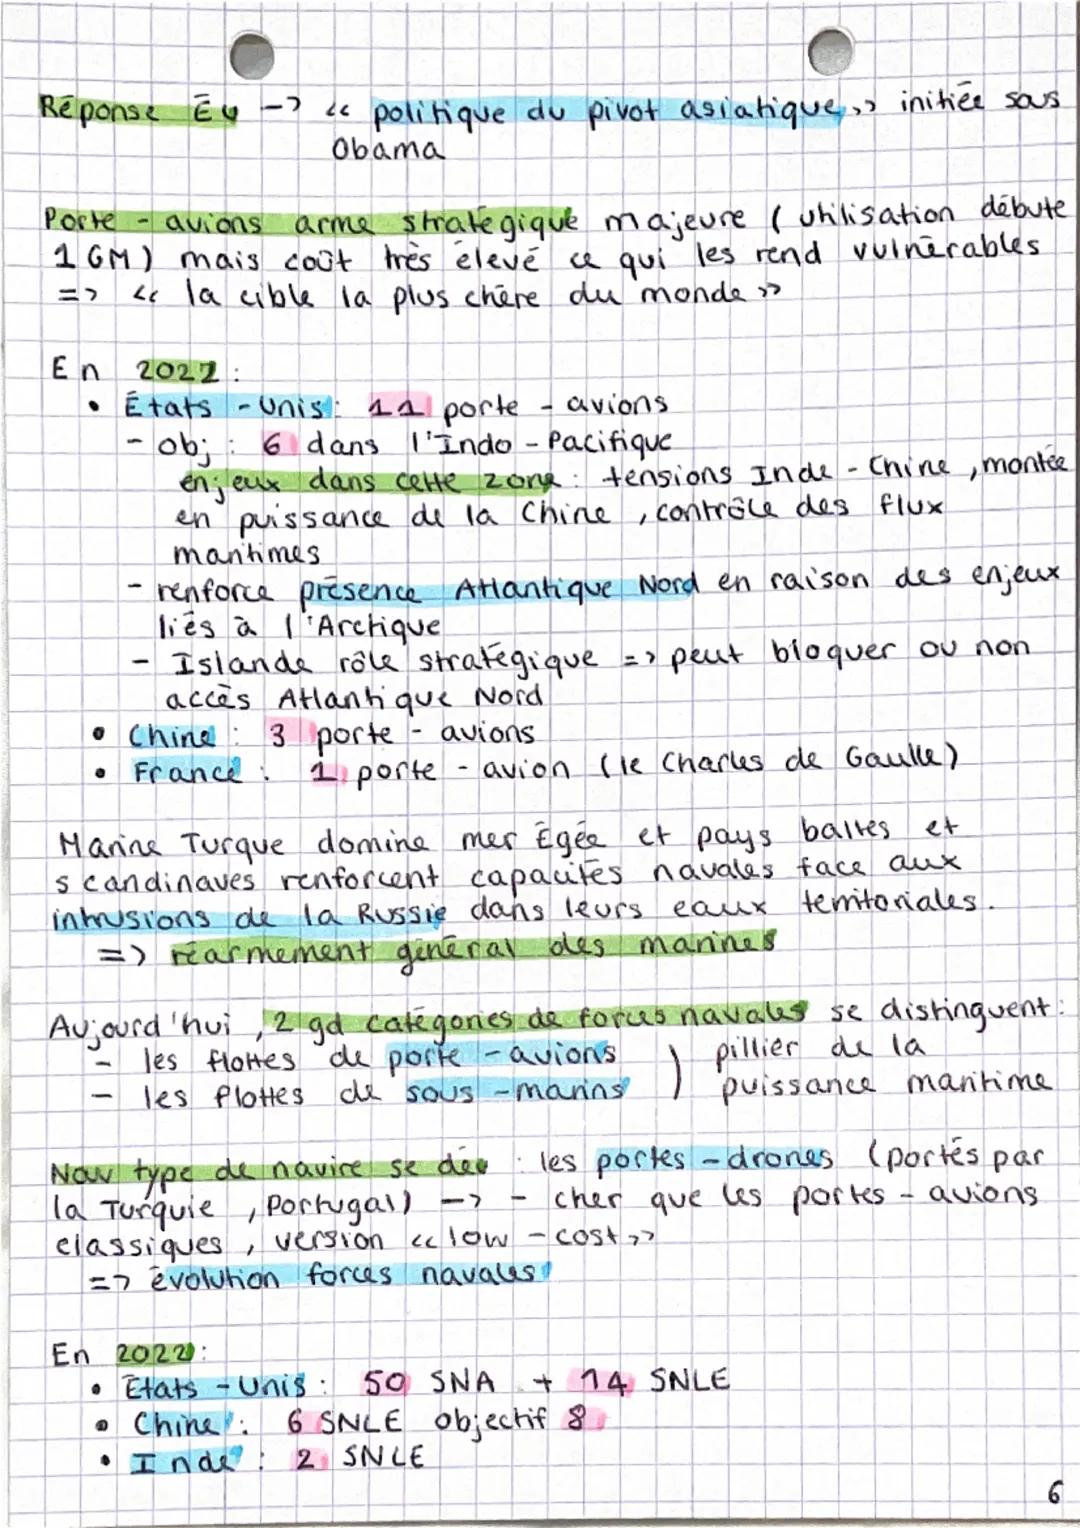 Réponse ÉU -> « politique du pivot asiatique » initiée sous
Obama
Porte - avions arme stratégique majeure ( utilisation débute
1 GM) mais coût très élevé ce qui les rend vulnérables
=> « la cible la plus chère du monde »
En 2022 :
• États - Unis : 11 porte - avions
- obj : 6 dans l'Indo - Pacifique
enjeux dans cette zone : tensions Inde - Chine , montée
en puissance de la Chine , contrôle des flux
maritimes
- renforce présence Atlantique Nord en raison des enjeux
liés à l'Arctique
- Islande rôle stratégique => peut bloquer ou non
accès Atlantique Nord
• Chine : 3 porte - avions
• France : 1 porte - avion (le Charles de Gaulle)
Marine Turque domine mer Égée et pays baltes et
scandinaves renforcent capacités navales face aux
intrusions de la Russie dans leurs eaux territoriales.
=> réarmement général des marines
Aujourd'hui , 2 gd catégories de forces navales se distinguent :
- les flottes de porte - avions ) pillier de la
- les flottes de sous - marins ) puissance maritime
Nouv type de navire se dév : les portes - drones (portés par
la Turquie , Portugal) -> - cher que les portes - avions
classiques , version « low - cost »
=> évolution forces navales
En 2022 :
• États - Unis : 50 SNA + 14 SNLE
• Chine : 6 SNLE objectif 8
• Inde : 2 SNLE
6